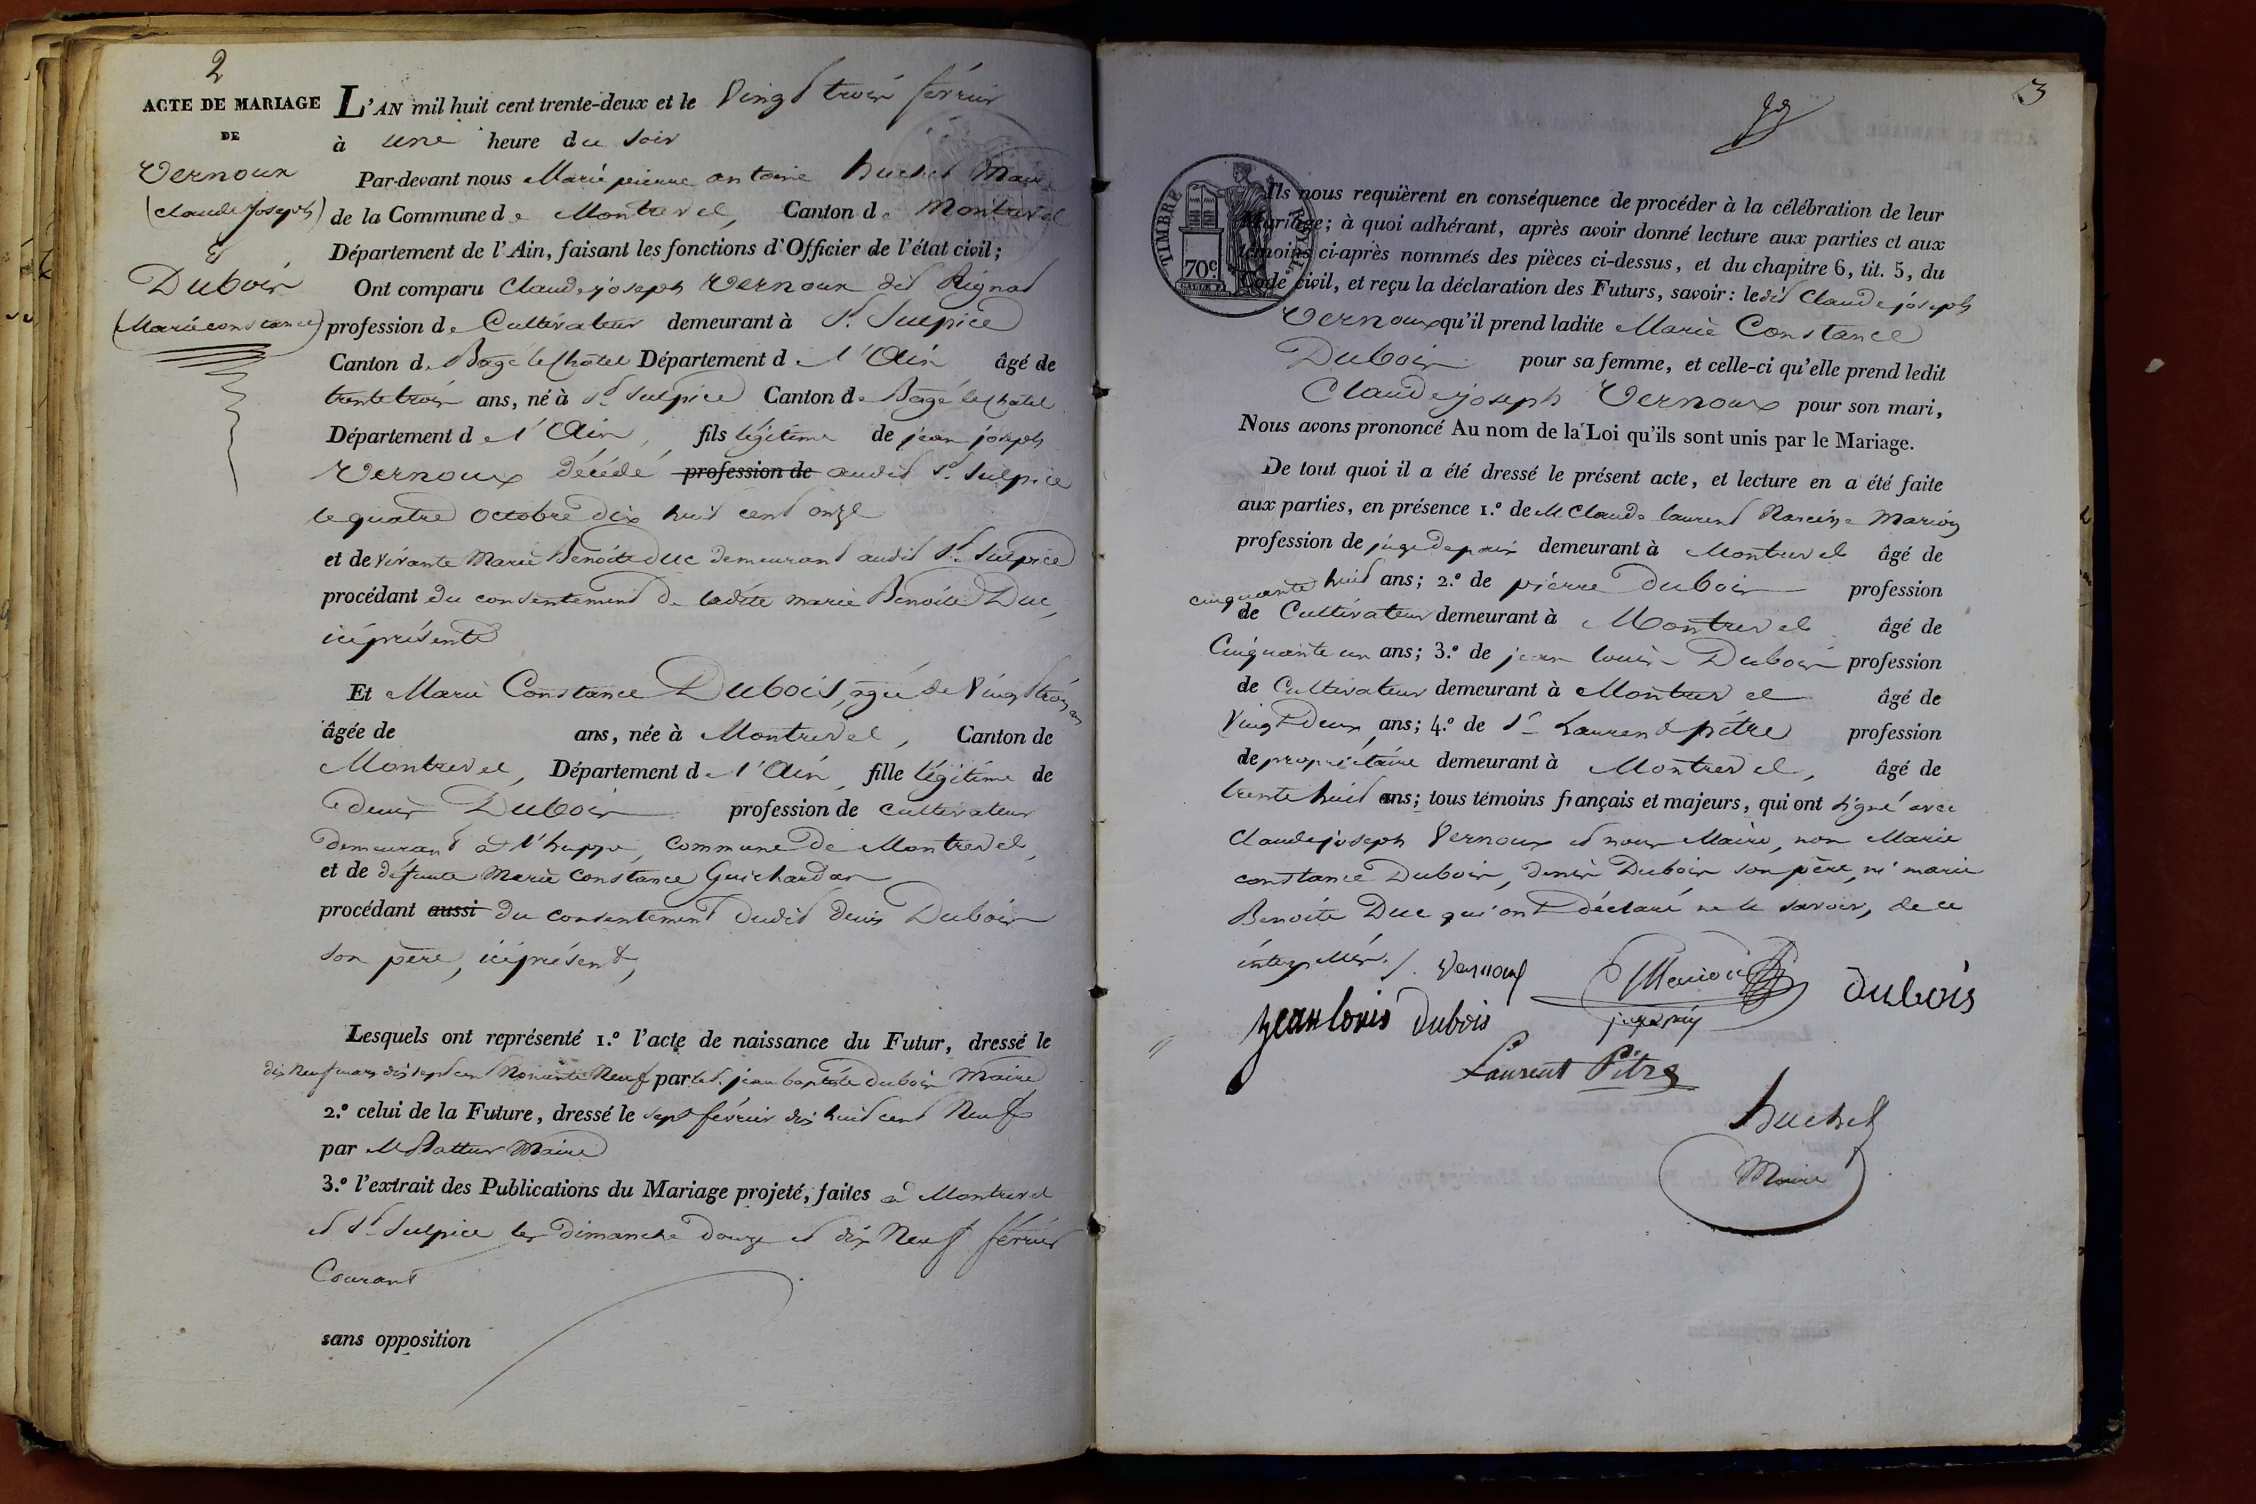 2
ACTE DE MARIAGE
DE
Vernoux
(Claude Joseph)
Et
Dubois
(Marie constance)
L'AN mil huit cent trente-deux et le Vingt trois février
à une heure du soir
Par-devant nous Marie pierre antoine huchet Maire
de la Commune de Montrevel, Canton de Montrevel
Département de l'Ain, faisant les fonctions d'Officier de l'état civil;
Ont comparu Claude joseph Vernoux dit Rignod
profession de Cultivateur demeurant à St. Sulpice
Canton de Bagé le Chatel Département de l'Ain âgé de
trente trois ans, né à St. Sulpice Canton de Bagé le Chatel
Département de l'Ain, fils légitime de jean joseph
Vernoux décédé profession de audit St. Sulpice
le quatre octobre dix huit cent onze
et de vivante Marie Benoite duc demeurant audit St. Sulpice
procédant du consentement de ladite marie Benoite Duc,
ici présente
Et Marie Constance Dubois, agée de Vingt trois ans
âgée de ans, née à Montrevel, Canton de
Montrevel, Département de l'Ain, fille légitime de
denis Dubois profession de cultivateur
demeurant à l'huppe, commune de Montrevel,
et de défunte Marie Constance Guichardan
procédant aussi du consentement dudit denis Dubois
son père, ici présent,
Lesquels ont représenté 1.º l'acte de naissance du Futur, dressé le
dix Neuf mars dix sept cent Nonante Neuf par le S. jean baptiste dubois Maire
2.º celui de la Future, dressé le sept février dix huit cent Neuf
par M Maire
3.º l'extrait des Publications du Mariage projeté, faites à Montrevel
et St. Sulpice les Dimanche douze et dix Neuf février
Courant
sans opposition
3
TIMBRE ROYAL
70c.
Ils nous requièrent en conséquence de procéder à la célébration de leur
Mariage; à quoi adhérant, après avoir donné lecture aux parties et aux
témoins ci-après nommés des pièces ci-dessus, et du chapitre 6, tit. 5, du
Code civil, et reçu la déclaration des Futurs, savoir: ledit Claude joseph
Vernoux qu'il prend ladite Marie Constance
Dubois pour sa femme, et celle-ci qu'elle prend ledit
Claude joseph Vernoux pour son mari,
Nous avons prononcé Au nom de la Loi qu'ils sont unis par le Mariage.
De tout quoi il a été dressé le présent acte, et lecture en a été faite
aux parties, en présence 1.º de M Claude laurent Narcisse Marion
profession de juge de paix demeurant à Montrevel âgé de
cinquante huit ans; 2.º de pierre Dubois profession
de Cultivateur demeurant à Montrevel âgé de
Cinquante un ans; 3.º de jean louis Dubois profession
de Cultivateur demeurant à Montrevel âgé de
Vingt Deux ans; 4.º de Sr Laurent pitre profession
de propriétaire demeurant à Montrevel, âgé de
trente huit ans; tous témoins français et majeurs, qui ont signé avec
Claude joseph Vernoux et nous Maire, non Marie
constance Dubois, denis Dubois son père, ni marie
Benoite Duc qui ont déclaré ne le savoir, de ce
interpellés. Vernoux Marion dubois
jean louis dubois
Laurent Pitre
huchet
Maire